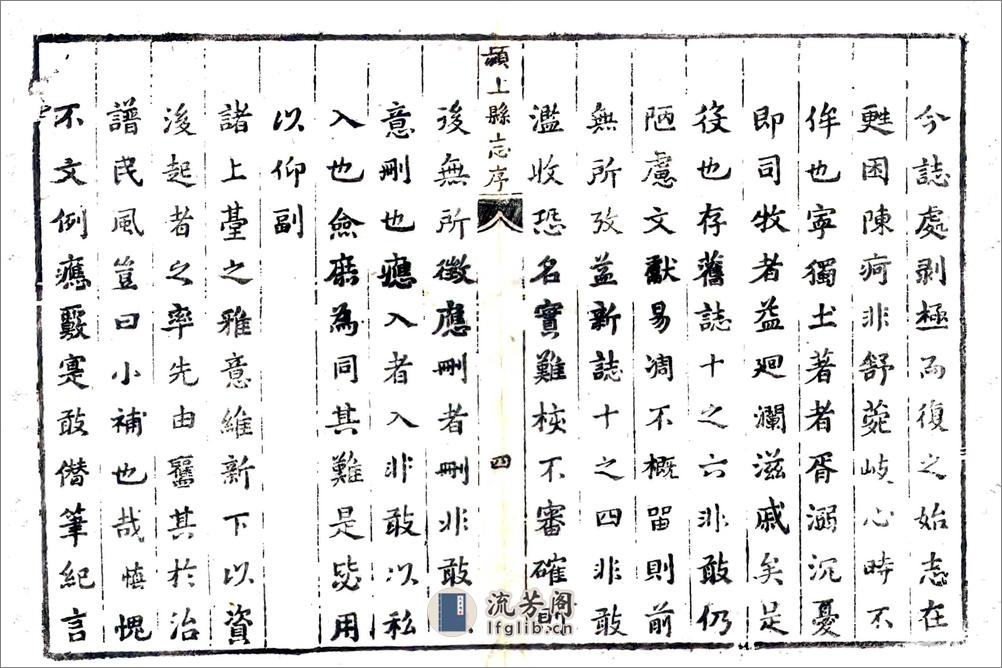 今誌處剥極而復之始志在
甦困陳疴非舒薧岐心時不
侔也寜獨土著者胥溺沉憂
即司牧者益廻瀾滋戚矣足
役也存舊誌十之六非敢仍
陋慮文獻易凋不概畱則前
無所攷益新誌十之四非敢
濫收恐名實難核不審確則
潁上縣志序 四
後無所徵應刪者刪非敢
意刪也應入者入非敢以私
入也僉庶為同其難是毖用
以仰副
諸上臺之雅意維新下以資
後起者之率先由舊其於治
譜民風豈曰小補也哉慎愧
不文例應覈寔敢僭筆紀言
流芳阁
lfglib.cn